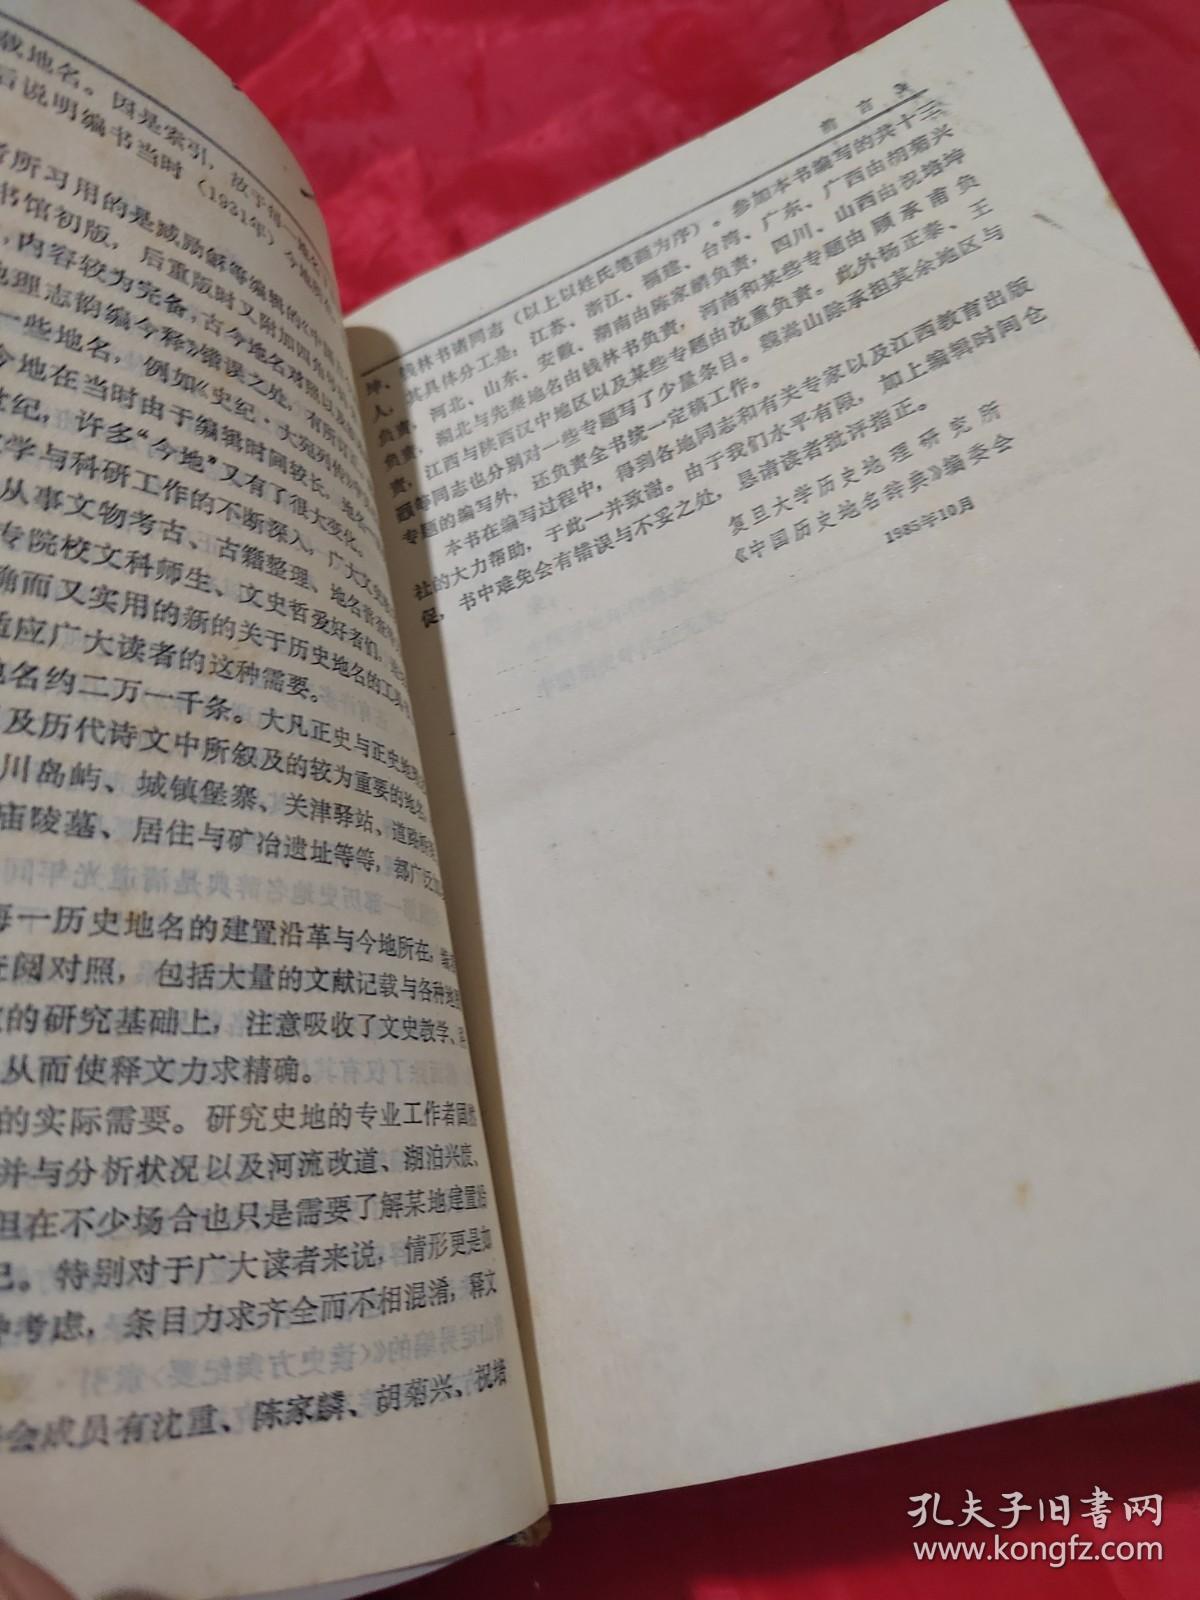 载地名。因是索引，故于每一地名下
后说明编书当时（1931年）今地所在
者所习用的是臧励龢等编辑的《中国
书馆初版，后重版时又附加四角号码
，内容较为完备，古今地名对照以及
地理志韵编今释》错误之处，有所订正
一些地名，例如《史纪·大宛列传》
今地在当时由于编辑时间较长，
世纪，许多“今地”又有了很大变化。
教学与科研工作的不断深入，广大文史
从事文物考古、古籍整理、地名普查
专院校文科师生、文史哲爱好者们，
确而又实用的新的关于历史地名的工具
适应广大读者的这种需要。
地名约二万一千条。大凡正史与正史地
及历代诗文中所叙及的较为重要的地名，
川岛屿、城镇堡寨、关津驿站、道路
庙陵墓、居住与矿冶遗址等等，都广泛
每一历史地名的建置沿革与今地所在，
查阅对照，包括大量的文献记载与各种地
的研究基础上，注意吸收了文史教学、
从而使释文力求精确。
的实际需要。研究史地的专业工作者固然
并与分析状况以及河流改道、湖泊兴废、
但在不少场合也只是需要了解某地建置沿
已。特别对于广大读者来说，情形更是如
种考虑，条目力求齐全而不相混淆，释文
会成员有沈重、陈家麟、胡菊兴、祝培
前言
坤、钱林书诸同志（以上以姓氏笔画为序）。参加本书编写的共十三
人，其具体分工是：江苏、浙江、福建、台湾、广东、广西由胡菊兴
负责，河北、山东、安徽、湖南由陈家麟负责，四川、山西由祝培坤
负责，湖北与先秦地名由钱林书负责，河南和某些专题由顾承甫负
责，江西与陕西汉中地区以及某些专题由沈重负责。此外杨正泰、王
等同志也分别对一些专题写了少量条目。魏嵩山除承担其余地区与
专题的编写外，还负责全书统一定稿工作。
本书在编写过程中，得到各地同志和有关专家以及江西教育出版
社的大力帮助，于此一并致谢。由于我们水平有限，加上编辑时间仓
促，书中难免会有错误与不妥之处，恳请读者批评指正。
复旦大学历史地理研究所
《中国历史地名辞典》编委会
1985年10月
孔夫子旧书网
www.kongfz.com